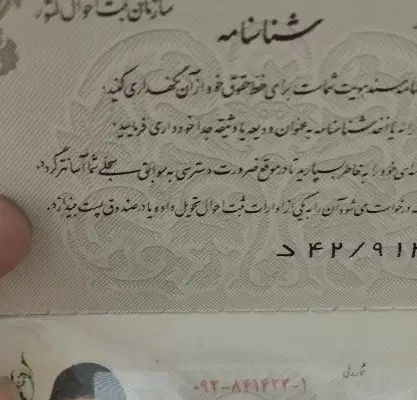 سازمان ثبت احوال کشور
شناسنامه
سند هویت شماست برای حفظ حقوق خود از آن نگهداری کنید:
شناسنامه به عنوان ودیعه یا وثیقه جدا خودداری فرمایید:
خود را به خاطر بسپارید تا در موقع ضرورت دسترسی به سوابق سجلی شما آسانتر گردد.
درخواست می شود آن را به یکی از ادارات ثبت احوال تحویل داده یا در صندوق پست بیندازد.
د ۴۲/۹۱۲
شماره ملی
۰۹۲-۸۴۱۴۲۳-۱